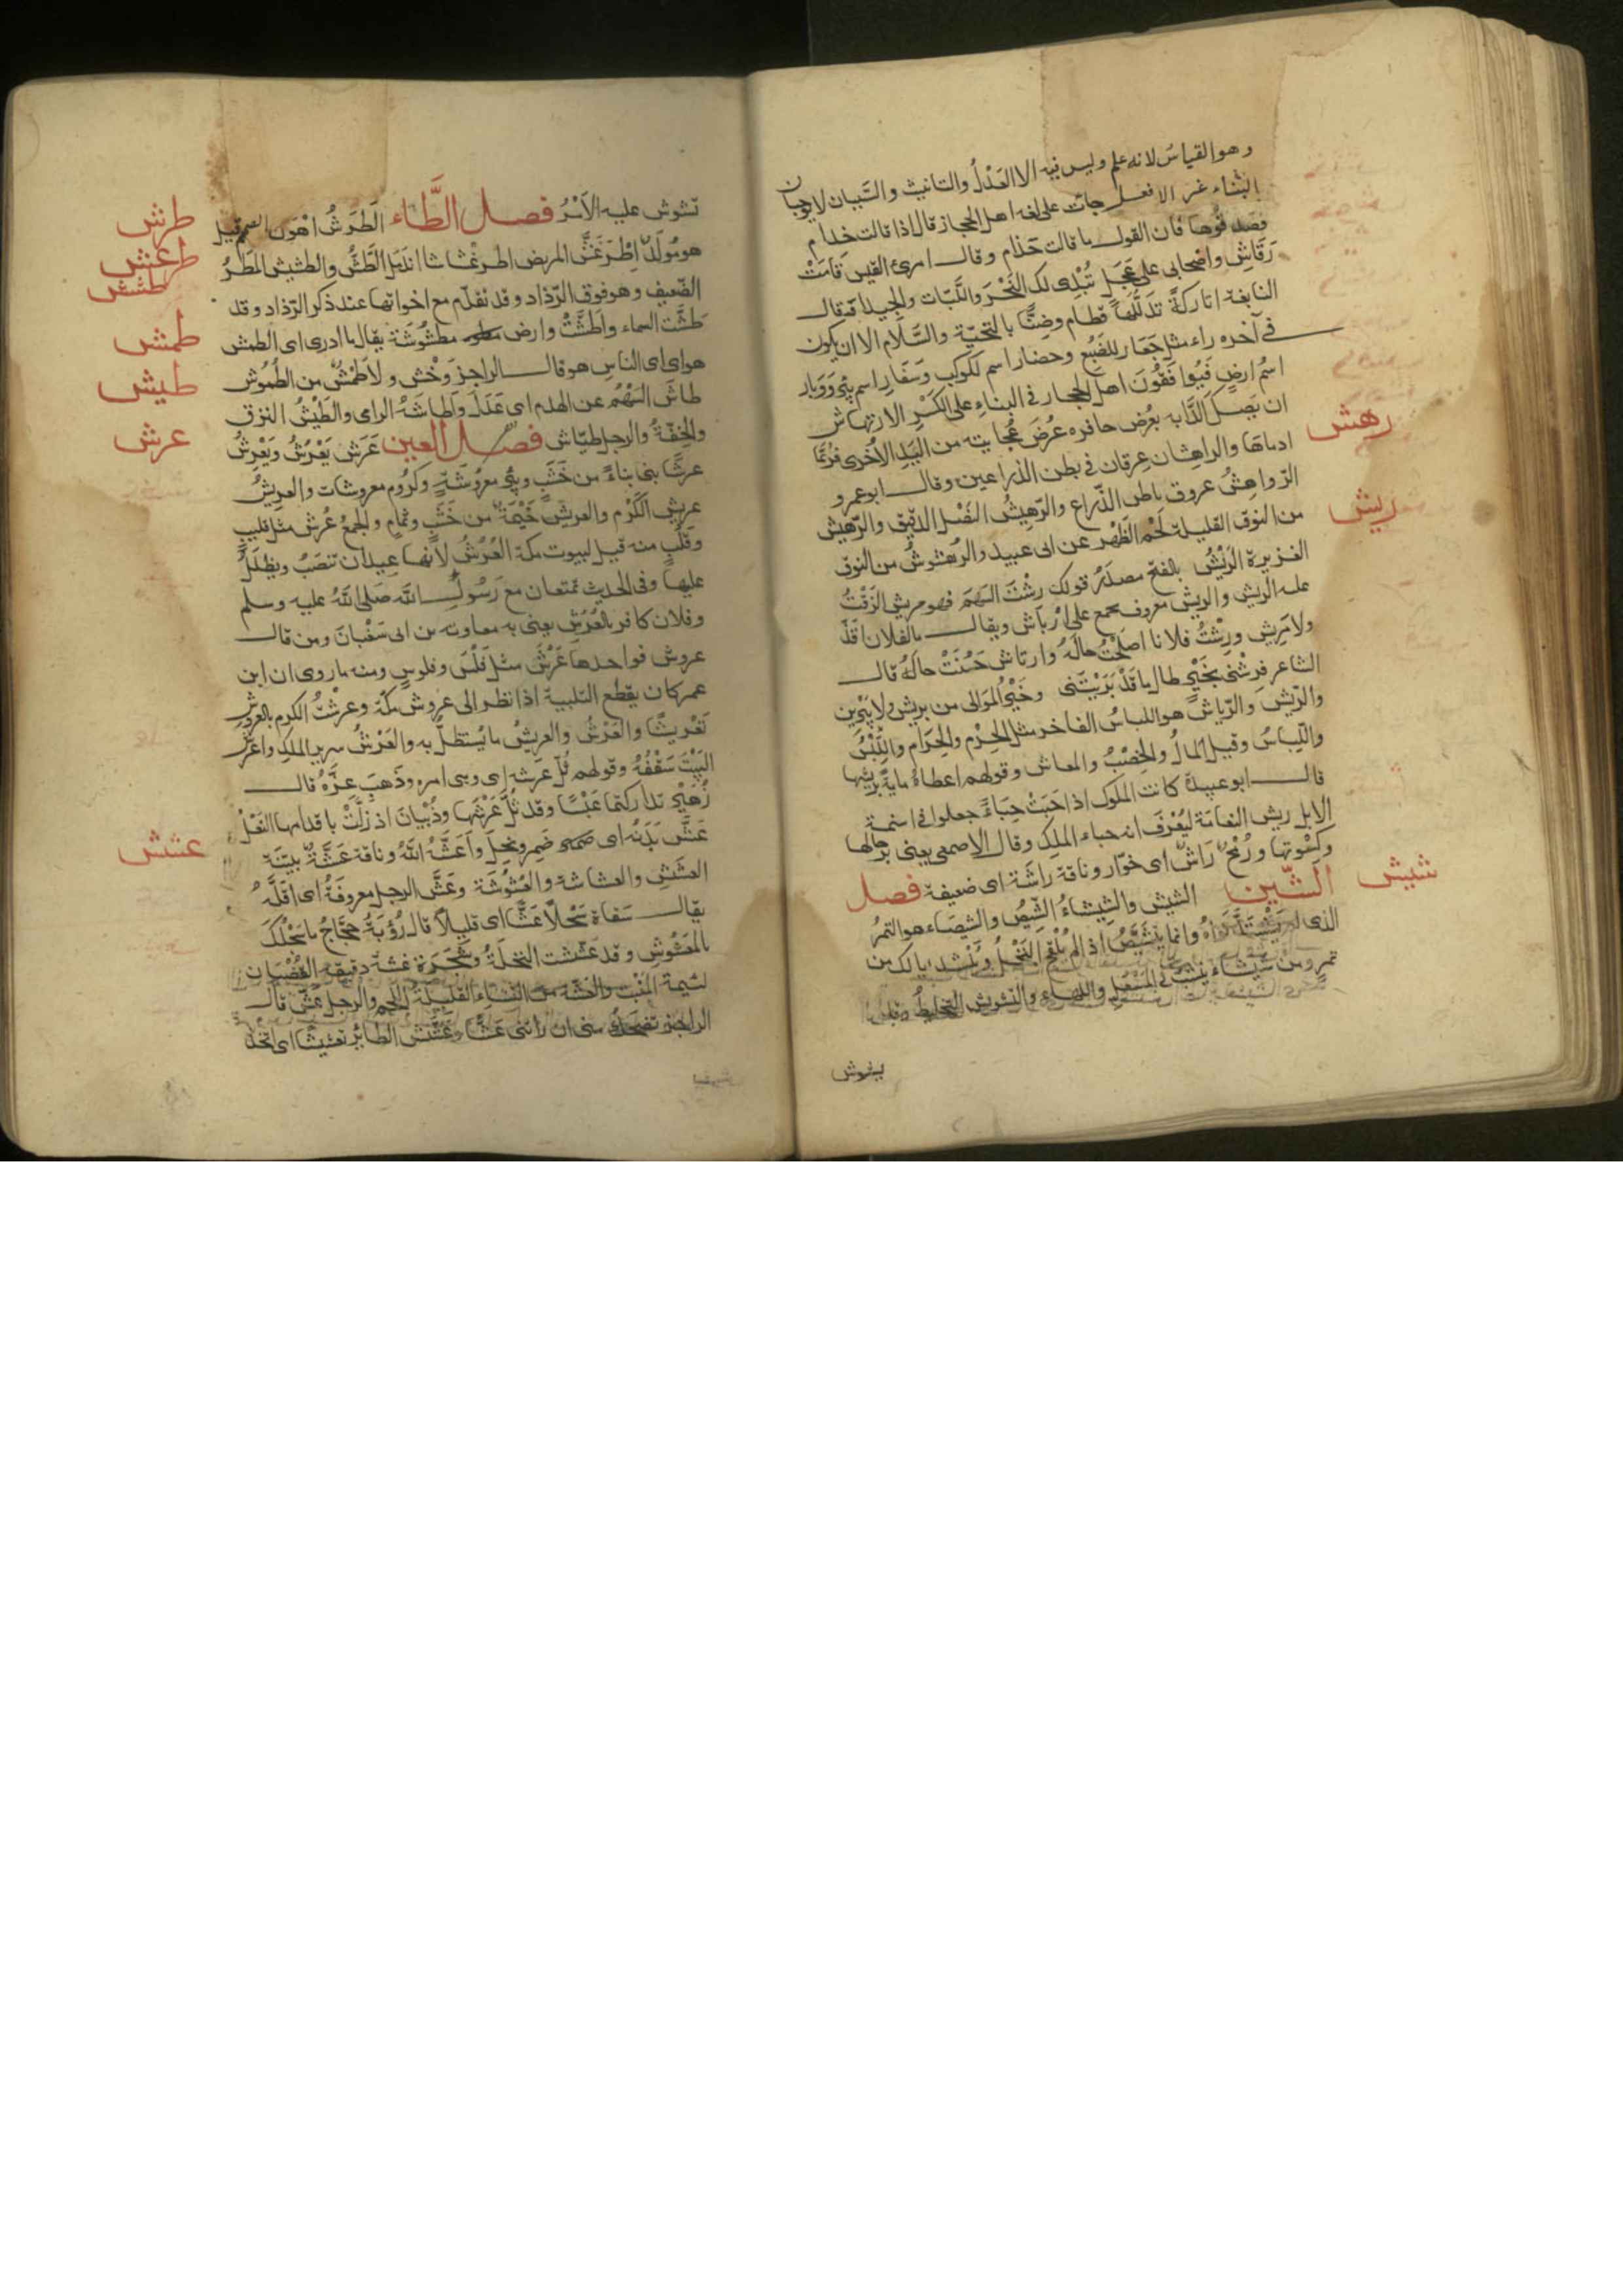 وهو القياس لانه علم وليس فيه الا العَدْلُ والتانيث والسَّببان لا يوجبان
البناء غير الا فعل جات على لغه اهل الحجاز قال اذا قالت خذام
فصدقوها فان القول ما قالت حَذام وقال امرئ القيس قامَتْ
رَقَاشِ واضحابى على عَجَلٍ تُبْدِى لك النَّحْرَ واللَّبّات والجِيدا وقال
النابغة اتاركةً تدَلُّلَها قطام وضِنًّا بالتحيّة والسَّلام الا ان يكون
فى آخره راء مثل جَعَارِ للضَبُع وحضار اسم لكوكب وسَفَارِ اسم بِئْرٍ وَوَبار
اسْمُ ارضٍ فيوافقُونَ اهل الحجاز فى البناء على الكَسْرِ الارتهاش
رهش
ان يَصكّ الدَّابه بعُرض حافره عُرضَ عُجايته من اليَد الأُخرى فرُبّما
ادماها والراهشان عِرقان فى بطن الذراعين وقال ابو عمرو
الرّواهِشُ عروق باطن الذّراع والرّهِيشُ النَصْل الدّقيق والرّهيش
من النوق القليلة لَحْم الظَّهْر عن ابى عبيد والرُهْشوشُ من النوق
ريش
الغزيرة الرَّيْشُ بالفتح مصدَرُ قولك رِشْتَ السَهْمَ فهو مريش الزَقْتُ
عليه الريش والريش معروف يجمع على ارياش ويقال ما لفلان اقذّ
ولا مَرِيش ورِشْتُ فلانا اصلَحْتُ حالَهُ وارتاش حَسُنَتْ حاله قال
الشاعر فرِشْنى بخَيْرٍ طال ما قَدْ بَرَيْتَنى وخَيْرُ الموالى من يريش ولا يَبْرِى
والرّيش والرّياش هو اللباسُ الفاخر مثل الحِرْم والحَرَام واللِّبْسُ
واللّباسُ وقيل المالُ والخِصْبُ والمعاش وقولهم اعطاهُ مايةً بريشها
قال ابو عبيدة كانت الملوك اذا حَبَتْ حِبَاءً جعلوا فى اسنمة
الابل ريش النعامة ليُعْرَفَ انه حباء الملك وقال الاصمعى يعنى برحالها
وكسْوتها ورُمْحٌ رَاشٌ اى خوّار وناقة راشَة اى ضعيفة فصل
شيش
الشّين الشيش والشيشاءُ الشِّيصُ والشيصَاء هو التمرُ
الذى لا يَشْتدّ نَوَاهُ وانما يتشَيَّصُ اذا لم يُلْقَح النَّخْلُ ويُنْشد يا لك من
تمرٍ ومن شيشاء ينشب فى المَسْعَلِ واللهَاء والتشويش التخليط وقد
يشوش
تشوش عليه الأمْرُ فصل الطَّاء الطَرَشُ اهْوَن الصمم قيل
طرش
هو مُولَّدٌ اِطْرَغَشَّ المريض اطرغشاشا اندمَلَ الطَّشُّ والطشيش المَطَرُ
طرغش
طشش
الضّعيف وهو فوق الرّذاذ وقد تقدّم مع اخواتها عند ذكر الرّذاذ وقد
طَشَّت السماء واَطَشَّتْ وارض مطشُوشَة يقال ما ادرى اى الطمش
طمش
هو اى اى الناس هو قال الراجز وَحْش ولا طَمْشٌ من الطُمُوش
طيش
طاشَ السَهْمُ عن الهدف اى عَدَلَ واَطاشَهُ الرامى والطَيْشُ النزق
والخِفّةُ والرجل طيّاش فصل العين عَرَشَ يَعْرُشُ ويَعْرِشُ
عرش
عرشًا بنى بناءً من خَشَبٍ وبئر معروشَةٍ وكُرُوم معروشات والعريشُ
عريش الكَرْم والعريش خَيْمَة من خَشَبٍ وثُمامٍ والجمعُ عُرُش مثل قليبٍ
وقُلُبٍ منه قيل لبيوت مكة العُرُشُ لأنها عيدان تنصَبُ ويُظَلَّلُ
عليها وفى الحديث تمتعنا مع رَسُولِ اللَّه صَلى اللَّهُ عليه وسلم
وفلان كافر بالعُرُش يعنى به معاوية بن ابى سفيان ومن قال
عروش فواحدها عَرْشٌ مثل فَلْس وفلوس ومنه ما روى ان ابن
عمر كان يقطع التلبية اذا نظر الى عروش مكة وعرشْتُ الكرم بالعروش
تعْريشًا والعَرْشُ والعريشُ ما يُستظلّ به والعَرْشُ سرير الملك وعَرْشُ
البَيْتَ سَقْفُهُ وقولهم ثُلَّ عَرشه اى وهى امره وذَهبَ عِزَّهُ قال
زُهَيْرٌ تداركتما عَبْسًا وقد ثُلَّ عَرْشُها وذُبْيانَ اذ زلَّتْ باقدامها النَعْلُ
عشش
عَشَّ بَدَنُه اى ضَمِر ونحل وأعَشَّهُ اللَّهُ وناقة عَشَّةٌ بيّنة
العشَشِ والعشاشة والعُشُوشَة وعَشَّ الرجل معروفَهُ اى اَقَلَّهُ
يقال سَقاهُ سَجْلًا عَشًّا اى قليلًا قال رُؤبَةُ حجّاجُ ما سَجْلُكَ
بالمعْشُوشِ وقد عَشَّشت النخلةُ وشَجَرة عَشَّة دقيقة القُضْبان
لئيمة المَنْبت والعَشّة من النساء القليلة اللحم والرجل عَشّ قال
الراجز تضحك منى ان رأتنى عَشًّا وعَشَّش الطائر تعشيشًا اى اتخذ